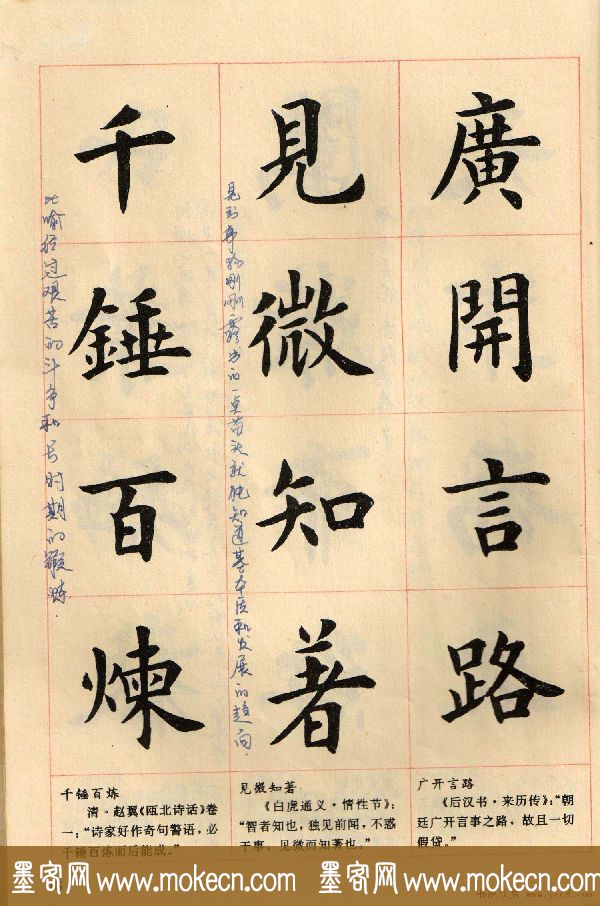 廣開言路
見微知著
千錘百煉
见到事物刚刚露出的一点苗头就能知道其本质和发展的趋向.
比喻经过艰苦的斗争和长时期的锻炼.
广开言路
《后汉书·来历传》:“朝
廷广开言事之路，故且一切
假贷。”
见微知著
《白虎通义·情性节》:
“智者知也，独见前闻，不惑
于事，见微而知著也。”
千锤百炼
清·赵翼《瓯北诗话》卷
一:“诗家好作奇句警语，必
千锤百炼而后能成。”
墨客网 www.mokecn.com 墨客网 www.mokecn.com